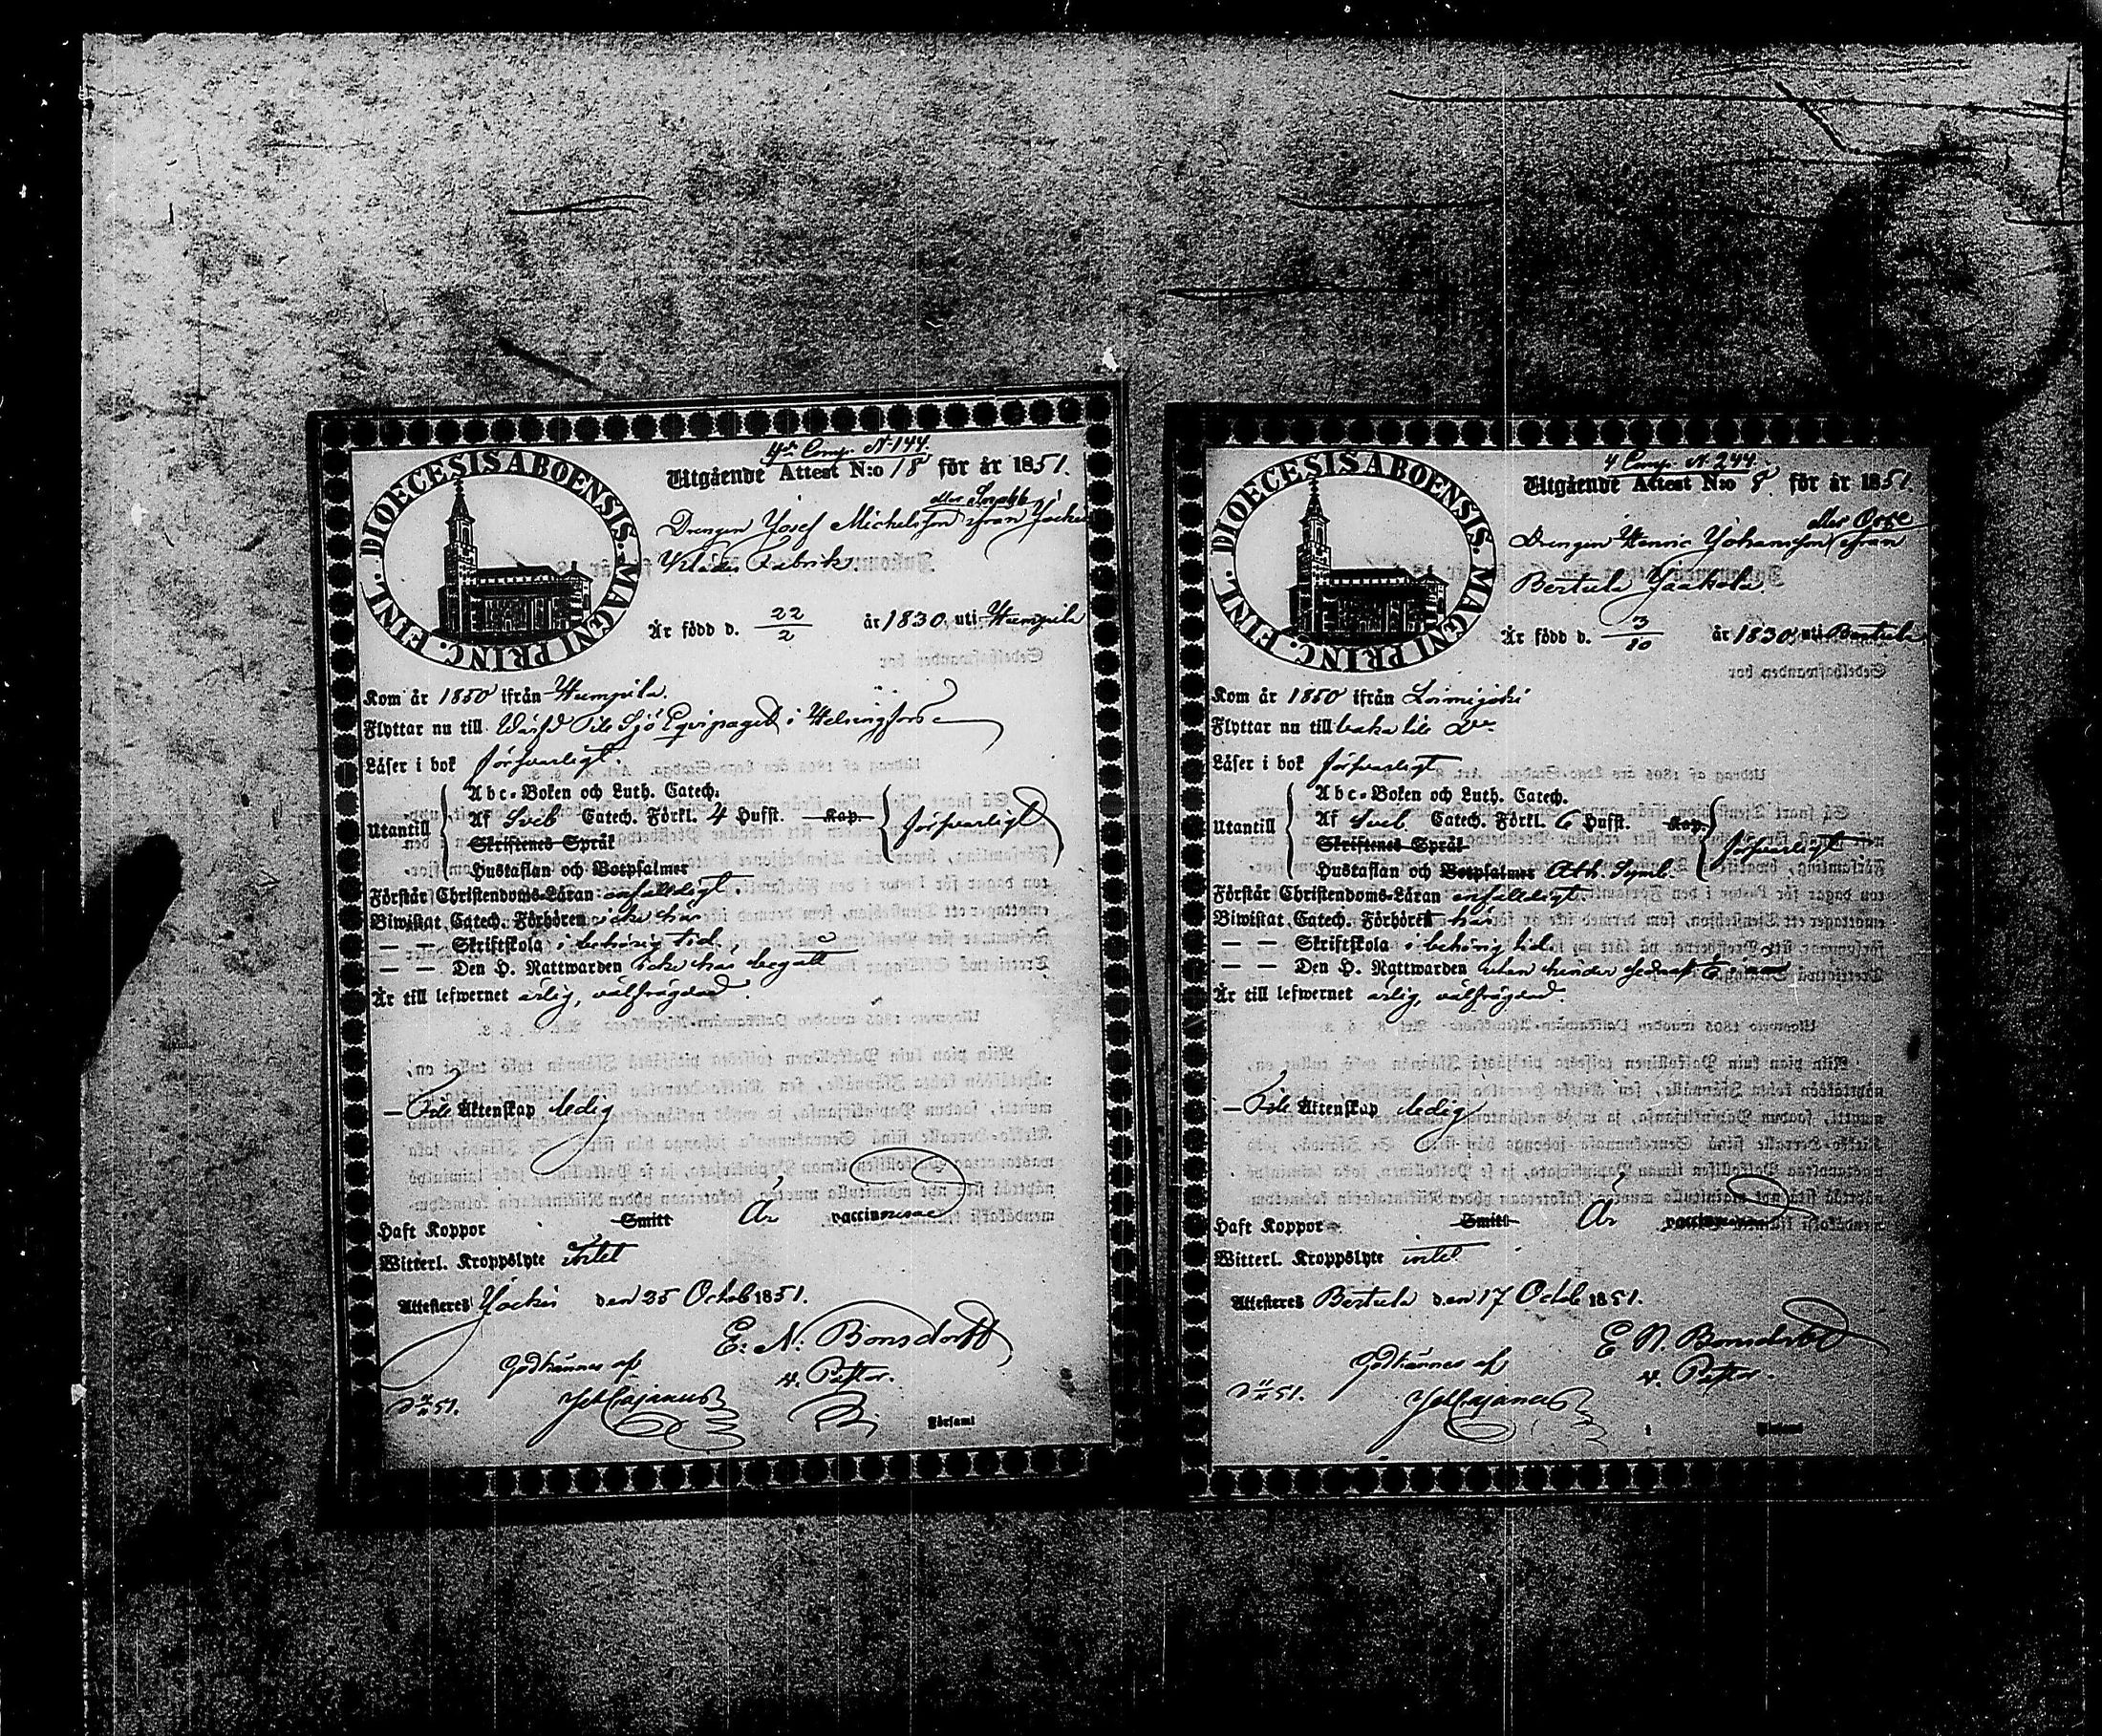 4de Comp. N 144.
DIOECESIS ABOENSIS. MAGNI PRINC. FINL.
Utgående Attest N:o 18 för år 1851.
eller Snabb
Drengen Josef Michelsson ifrån Jockis
Klädes Fabrik.
Är född d. 22/2 år 1830 uti Humpila
Kom år 1850 ifrån Humpila.
Flyttar nu till Wärfd till Sjö Equipaget i Helsingfors
Läser i bok försvarligt.
Abc-Boken och Luth. Catech.
Utantill Af Sveb Catech. Förkl. 4 Hufst. Kap. försvarligt
Skriftenes Språk
Hustaflan och Botpsalmer
Förstår Christendoms-Läran enfaldigt.
Biwistat Catech. Förhören icke har
— — Skriftskola i behörig tid
— — Den H. Nattwarden icke har begått
Är till lefwernet ärlig, välfrägdad.
— Till Äktenskap ledig
Haft Koppor Smitt Är vaccinerad
Witterl. Kroppslyte intet
Attesteres Jockis den 25 Octob 1851.
E. N. Bonsdorff
v. Pastor.
Godkännes af
Församl
4 Comp. N 244
DIOECESIS ABOENSIS. MAGNI PRINC. FINL.
Utgående Attest N:o 8 för år 1851.
eller Orre
Drengen Henric Johansson ifrån
Bertula Jaakola.
Är född d. 3/10 år 1830 uti Bertula
Kom år 1850 ifrån Loimijoki
Flyttar nu till baka till
Läser i bok försvarligt
Abc-Boken och Luth. Catech.
Utantill Af Sveb. Catech. Förkl. 6 Hufst. Kap. försvarligt
Skriftenes Språk
Hustaflan och Botpsalmer Ath. Symb.
Förstår Christendoms-Läran enfaldigt.
Biwistat Catech. Förhören har
— — Skriftskola i behörig tid.
— — Den H. Nattwarden utan hinder
Är till lefwernet ärlig, välfrägdad.
— Till Äktenskap ledig
Haft Koppor Smitt Är vaccinerad
Witterl. Kroppslyte intet
Attesteres Bertula den 17 Octob 1851.
E. N. Bonsdorff
v. Pastor.
Godkännes af
Församl